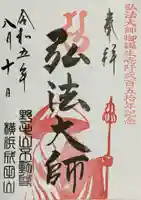 弘法大師御誕生壱千弐百五拾年記念
奉拝
弘法大師
令和五年
八月十日
野毛山不動尊
横浜成田山